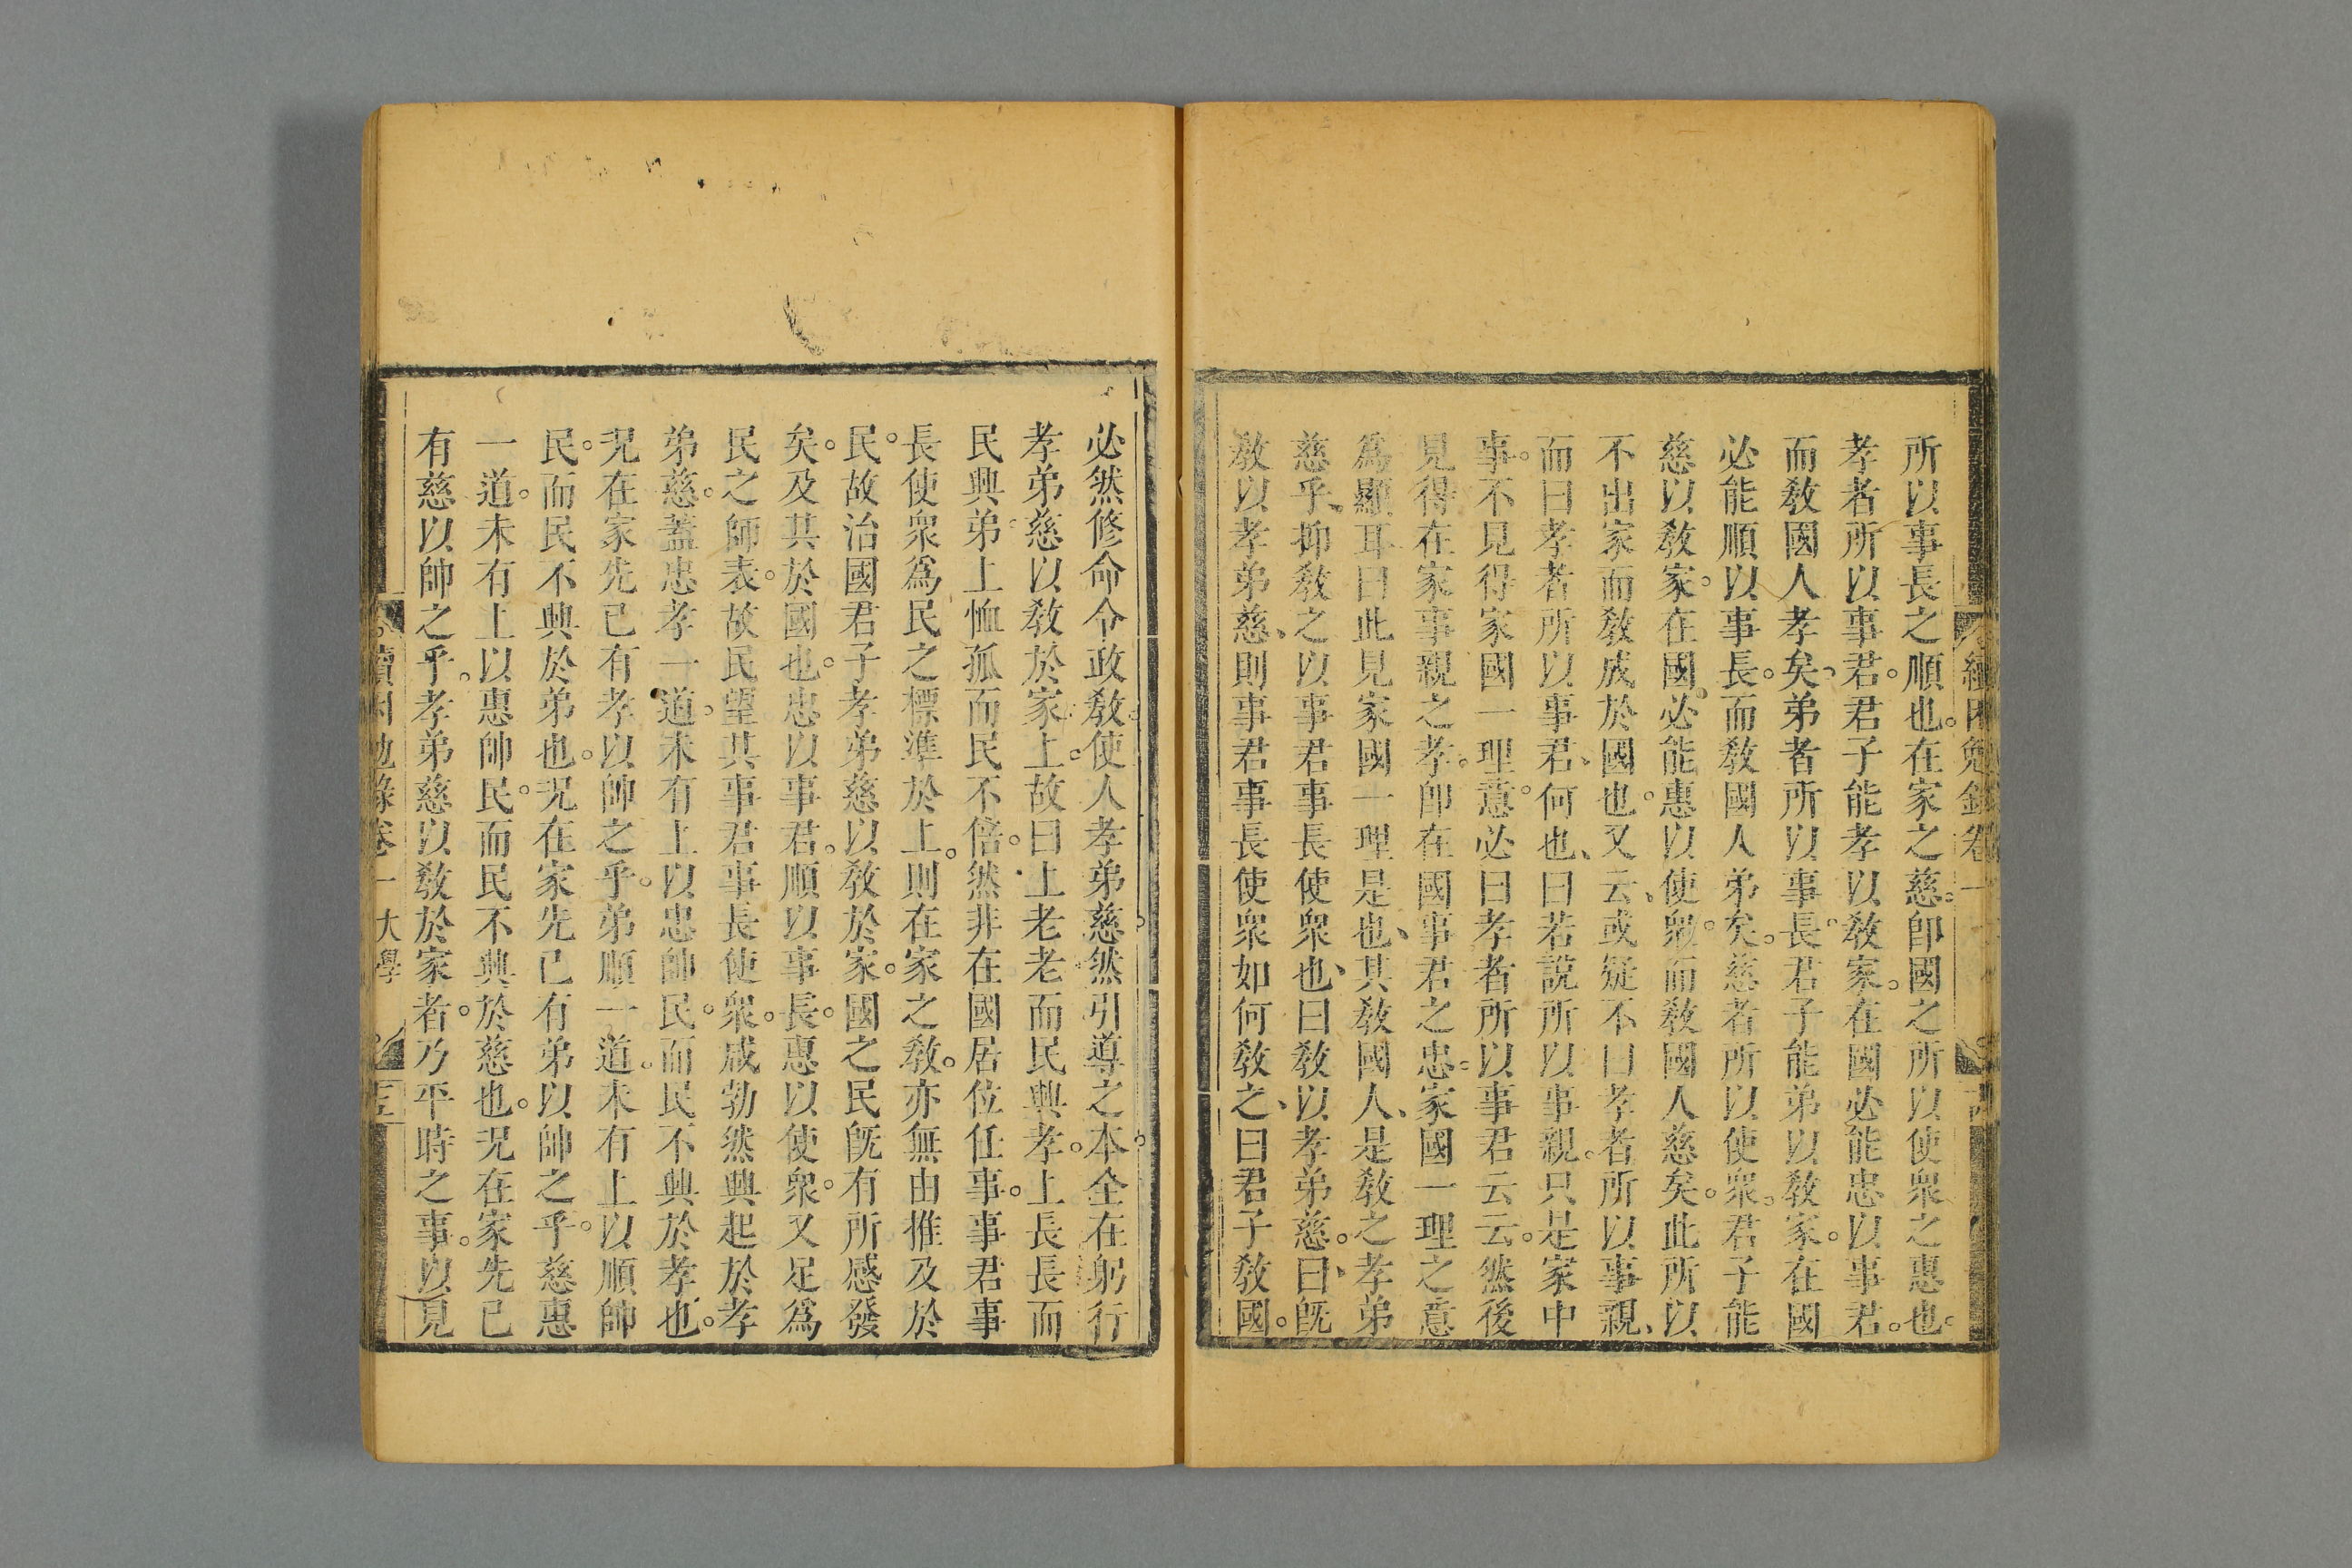 所以事長之順也。在家之慈。卽國之所以使衆之惠也。
孝者所以事君。君子能孝以敎家。在國必能忠以事君。
而敎國人孝矣。弟者所以事長。君子能弟以敎家。在國
必能順以事長。而敎國人弟矣。慈者所以使衆。君子能
慈以敎家。在國必能惠以使衆。而敎國人慈矣。此所以
不出家而敎成於國也。又云、或疑不曰孝者所以事親、
而曰孝者所以事君、何也、曰若說所以事親。只是家中
事。不見得家國一理意。必曰孝者所以事君云云。然後
見得在家事親之孝。卽在國事君之忠。家國一理之意
爲顯耳曰此見家國一理是也、其敎國人、是敎之孝弟
慈乎、抑敎之以事君事長使衆也、曰敎以孝弟慈。曰、旣
敎以孝弟慈、則事君事長使衆如何敎之、曰君子敎國。
續困勉錄卷一
必然修命令政敎。使人孝弟慈。然引導之本。全在躬行
孝弟慈以敎於家。上故曰上老老而民興孝。上長長而
民興弟。上恤孤而民不倍。然非在國居位任事。事君事
長使衆爲民之標準於上。則在家之敎。亦無由推及於
民。故治國君子孝弟慈以敎於家。國之民旣有所感發
矣。及其於國也。忠以事君。順以事長。惠以使衆。又足爲
民之師表。故民望其事君事長使衆。咸勃然興起於孝
弟慈。蓋忠孝一道。未有上以忠帥民。而民不興於孝也。
况在家先已有孝以帥之乎。弟順一道。未有上以順帥
民。而民不興於弟也。况在家先已有弟以帥之乎。慈惠
一道。未有上以惠帥民。而民不興於慈也。况在家先已
有慈以帥之乎。孝弟慈以敎於家者。乃平時之事。以見
續困勉錄卷一 大學